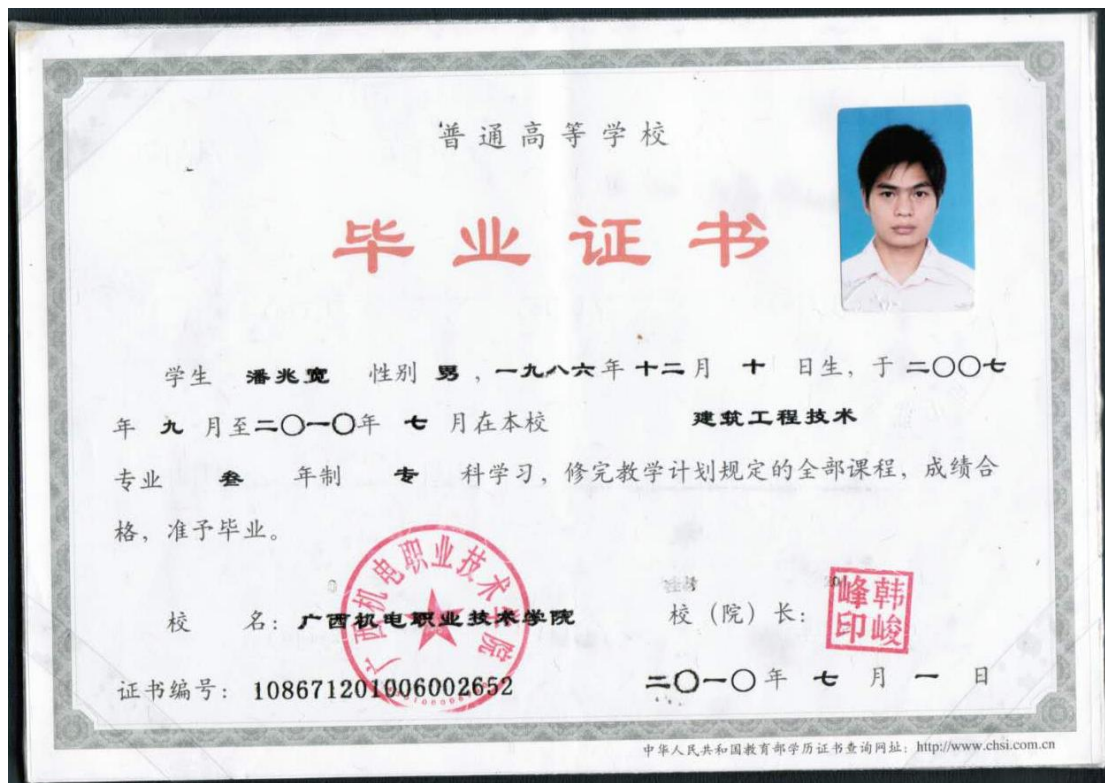 普通高等学校
毕业证书
学生 潘兆宽 性别 男，一九八六年十二月 十 日生，于二〇〇七
年 九 月至二〇一〇年 七 月在本校 建筑工程技术
专业 叁 年制 专 科学习，修完教学计划规定的全部课程，成绩合
格，准予毕业。
广西机电职业技术学院
校 名：广西机电职业技术学院
校（院）长：
韩峻峰印
证书编号：108671201006002652
二〇一〇年 七 月 一 日
中华人民共和国教育部学历证书查询网址：http://www.chsi.com.cn